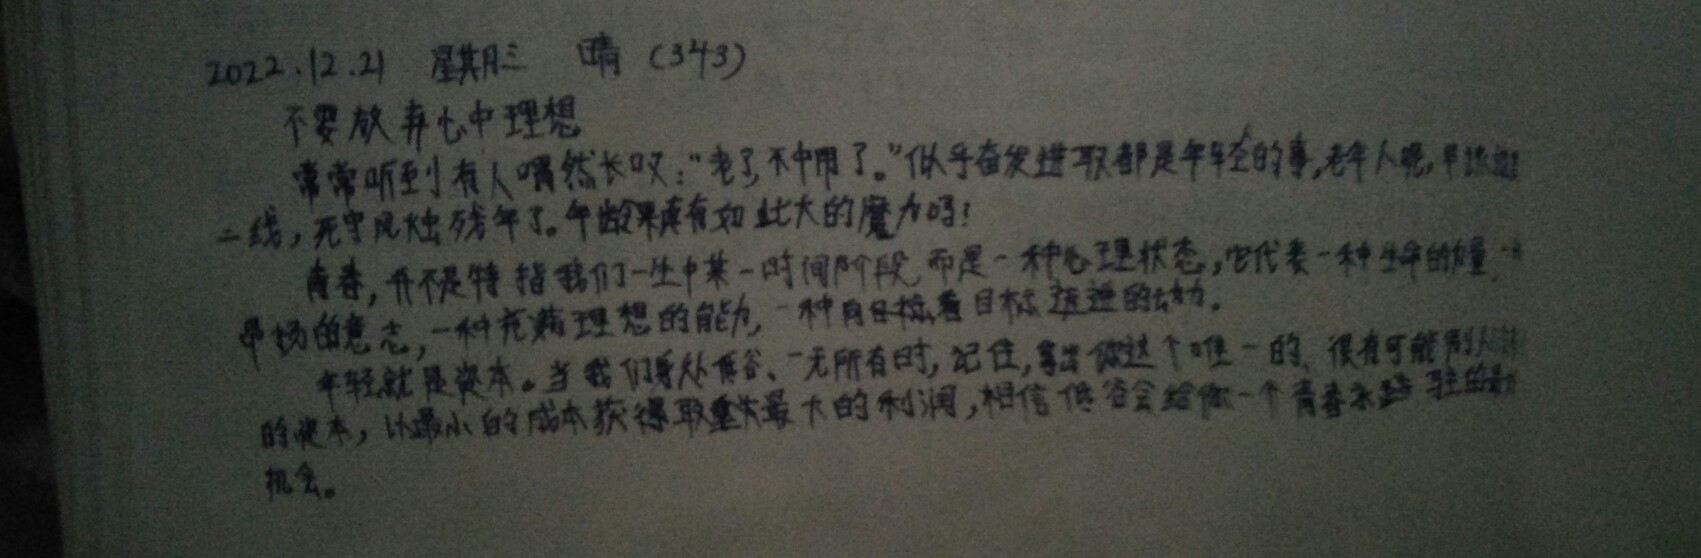 2022.12.21 星期三 晴（343）
不要放弃心中理想
常常听到有人喟然长叹："老了,不中用了。"似乎奋发进取都是年轻的事,老年人呢,早该
二线，死守风烛残年了。年龄果真有如此大的魔力吗?
青春，并不是特指我们一生中某一时间阶段,而是一种心理状态，它代表一种生命的力量,一
昂扬的意志，一种充满理想的能力,一种向目标迈进的动力。
年轻就是资本。当我们身处低谷、一无所有时,记住,拿出你这个唯一的、很有可能别人
的资本，以最小的成本获得最大的利润,相信低谷会给你一个青春永驻的
机会。